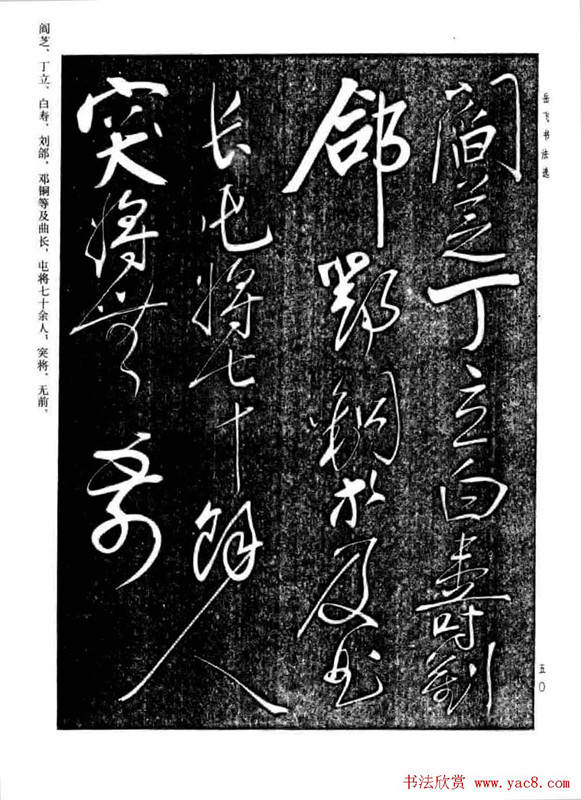 岳飞书法选
阎芝丁立白壽劉
郃鄧銅等及曲
长屯将七十餘人
突将無前
五〇
阎芝、丁立、白寿、刘郃，邓铜等及曲长，屯将七十余人；突将、无前、
书法欣赏 www.yac8.com